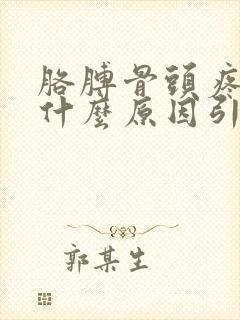 胳膊骨頭疼
什麼原因引
郭某生